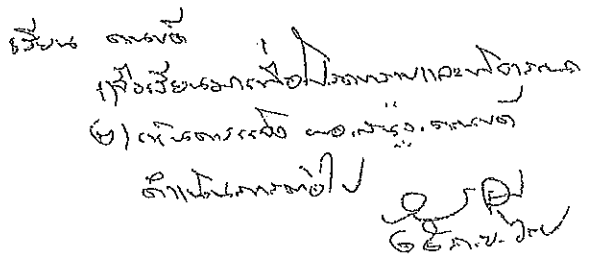 เรียน คณบดี
เพื่อเรียนมาเพื่อโปรดทราบและพิจารณา
(๒) เห็นควรแจ้ง ผอ.สนง.คณบดี
ดำเนินการต่อไป
๑๕ ก.ย.